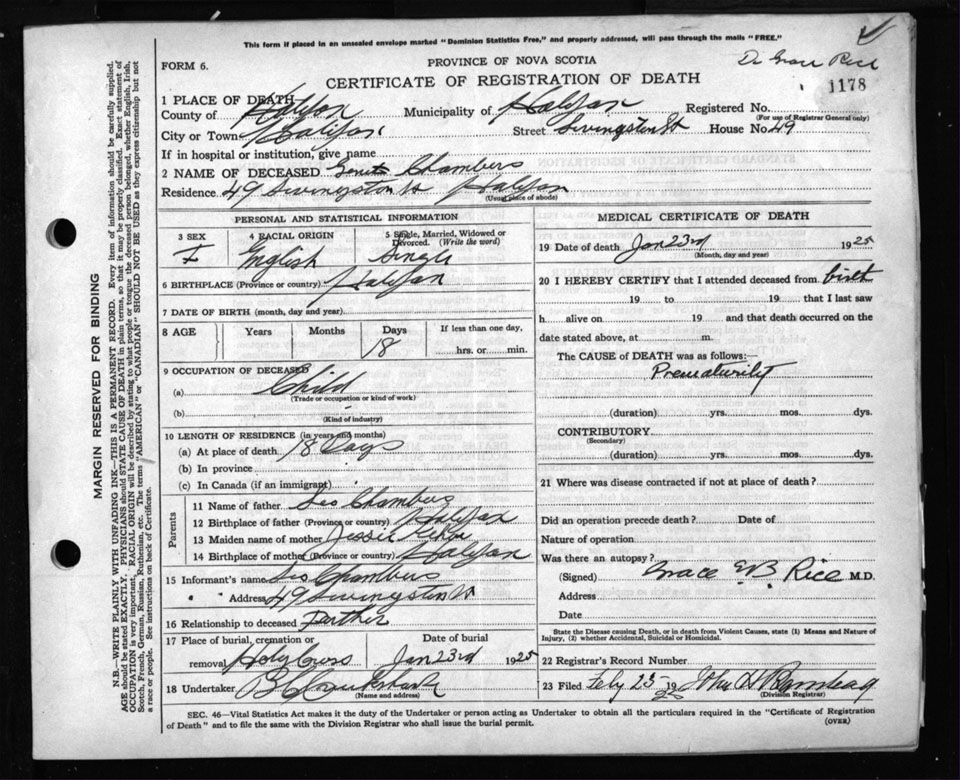 This form if placed in an unsealed envelope marked "Dominion Statistics Free," and properly addressed, will pass through the mails "FREE."
FORM 6.
PROVINCE OF NOVA SCOTIA
Dr Grace Rice
CERTIFICATE OF REGISTRATION OF DEATH
1178
1 PLACE OF DEATH
County of Halifax Municipality of Halifax Registered No.
(For use of Registrar General only)
City or Town Halifax Street Livingston St House No. 49
If in hospital or institution, give name
2 NAME OF DECEASED Chambers
Residence 49 Livingston St Halifax
(Usual place of abode)
PERSONAL AND STATISTICAL INFORMATION
3 SEX 4 RACIAL ORIGIN 5 Single, Married, Widowed or Divorced. (Write the word)
F English Single
6 BIRTHPLACE (Province or country) Halifax
7 DATE OF BIRTH (month, day and year)
8 AGE Years Months Days If less than one day,
18 hrs. or min.
9 OCCUPATION OF DECEASED
(a) Child
(Trade or occupation or kind of work)
(b)
(Kind of industry)
10 LENGTH OF RESIDENCE (in years and months)
(a) At place of death 18 Days
(b) In province
(c) In Canada (if an immigrant)
Parents
11 Name of father Leo Chambers
12 Birthplace of father (Province or country) Halifax
13 Maiden name of mother Jessie
14 Birthplace of mother (Province or country) Halifax
15 Informant's name Leo Chambers
" " Address 49 Livingston St
16 Relationship to deceased Father
17 Place of burial, cremation or Date of burial
removal Holy Cross Jan 23rd 1925
18 Undertaker
(Name and address)
MEDICAL CERTIFICATE OF DEATH
19 Date of death Jan 23rd 1925
(Month, day and year)
20 I HEREBY CERTIFY that I attended deceased from birth
19 to 19 that I last saw
h alive on 19 and that death occurred on
date stated above, at m.
The CAUSE of DEATH was as follows:—
Prematurity
(duration) yrs. mos. dys.
CONTRIBUTORY
(Secondary)
(duration) yrs. mos. dys.
21 Where was disease contracted if not at place of death?
Did an operation precede death? Date of
Nature of operation
Was there an autopsy?
(Signed) Grace E.B. Rice M.D.
Address
Date
State the Disease causing Death, or in death from Violent Causes, state (1) Means and Nature of
Injury, (2) whether Accidental, Suicidal or Homicidal.
22 Registrar's Record Number
23 Filed Feby 23 1925 John H
(Division Registrar)
SEC. 46—Vital Statistics Act makes it the duty of the Undertaker or person acting as Undertaker to obtain all the particulars required in the "Certificate of Registration
of Death" and to file the same with the Division Registrar who shall issue the burial permit.
(OVER)
MARGIN RESERVED FOR BINDING
N.B.—WRITE PLAINLY WITH UNFADING INK—THIS IS A PERMANENT RECORD. Every item of information should be carefully supplied.
AGE should be stated EXACTLY. PHYSICIANS should STATE CAUSE OF DEATH in plain terms, so that it may be properly classified. Exact statement of
OCCUPATION is very important. RACIAL ORIGIN will be described by stating to what people or tongue the deceased person belonged, whether English, Irish,
Scotch, French, German, Russian, Ruthenian, etc. The terms "AMERICAN" or "CANADIAN" SHOULD NOT BE USED as they express citizenship but not
a race or people. See instructions on back of Certificate.